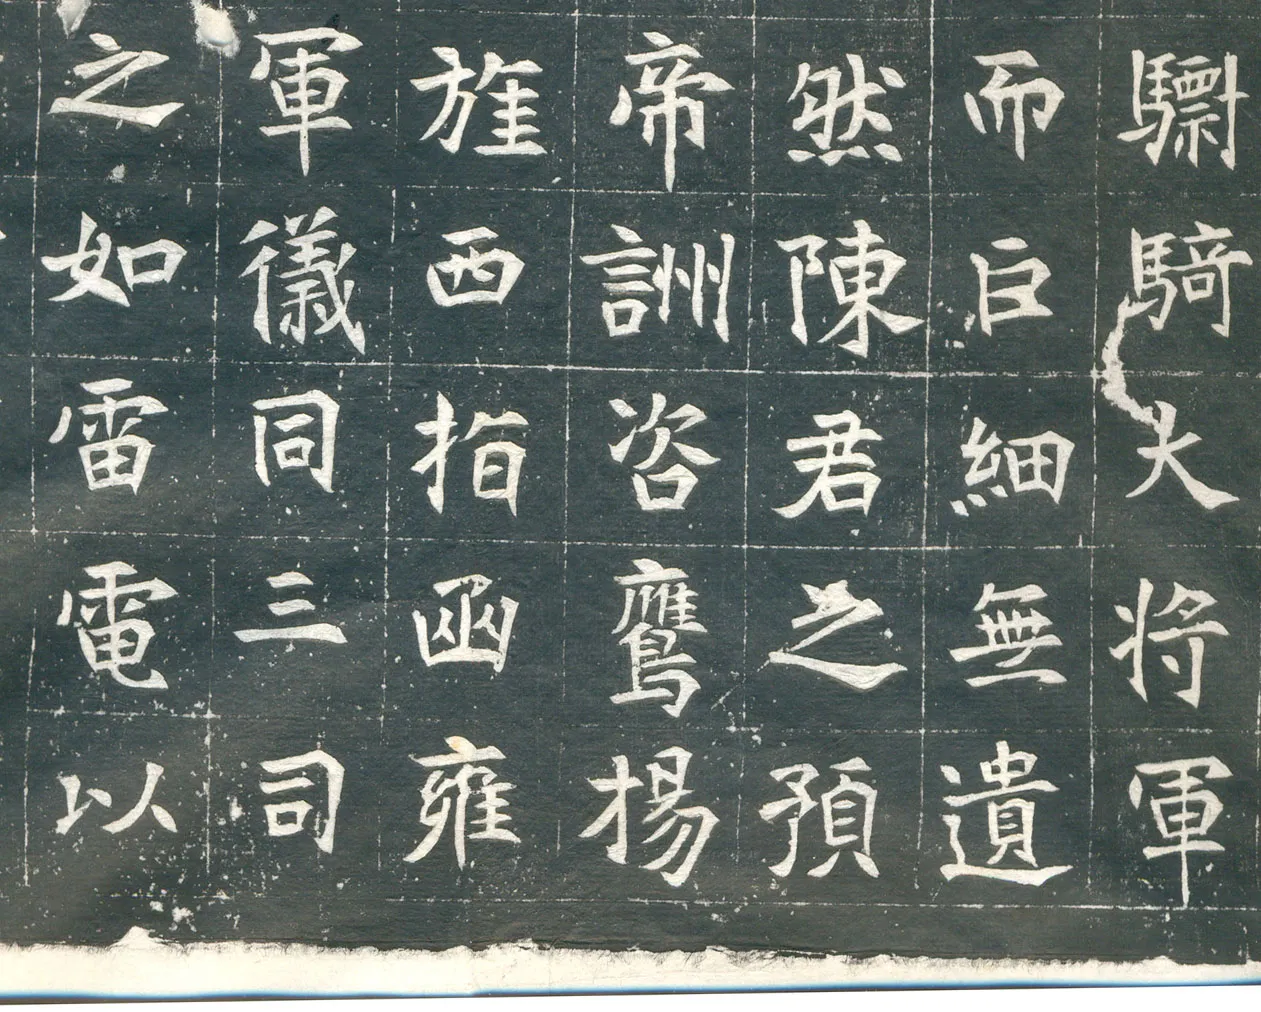 驃騎大將軍
而巨細無遺
然陳君之預
帝詶咨鷹揚
旌西指函雍
軍儀同三司
之如雷電以